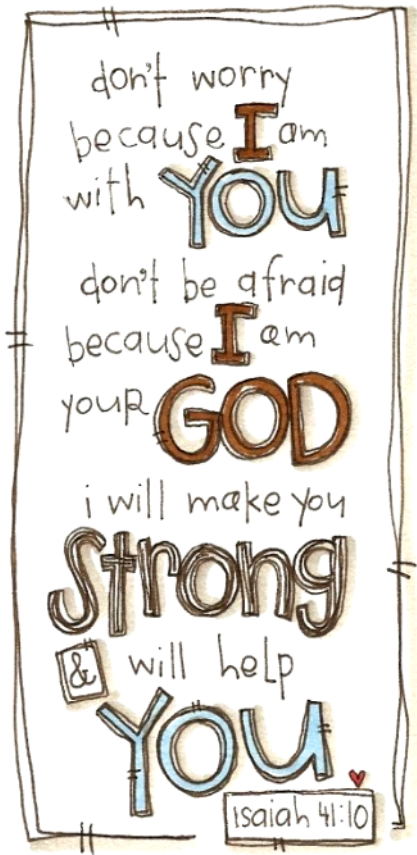 don't worry
because I am
with YOU
don't be afraid
because I am
youR GOD
i will make you
Strong
& will help
YOU
isaiah 41:10